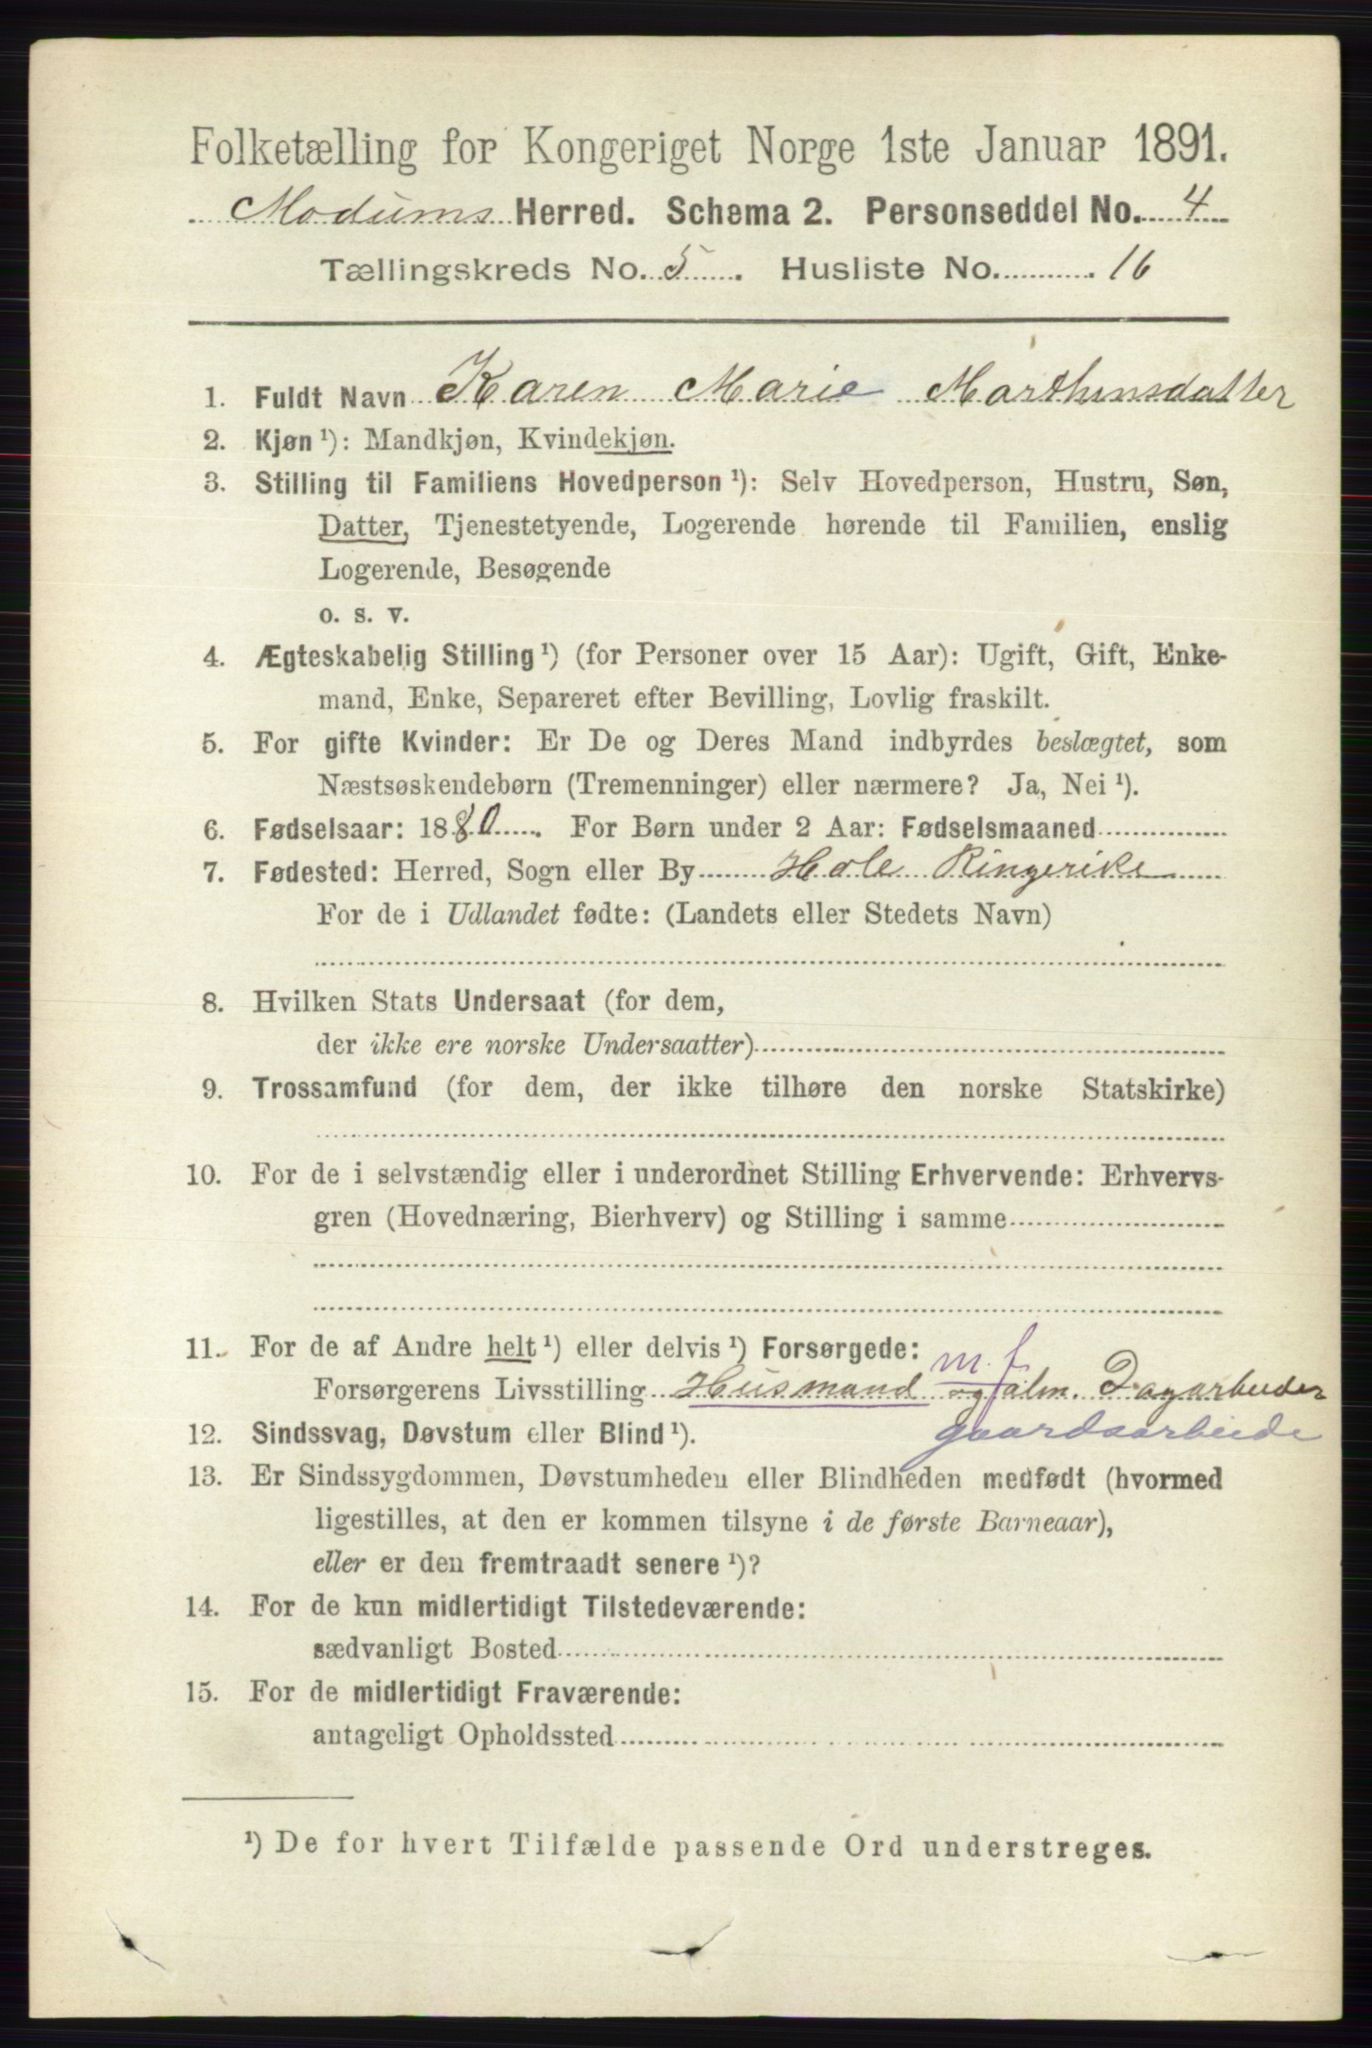 Folketælling for Kongeriget Norge 1ste Januar 1891.
Modums Herred. Schema 2. Personseddel No. 4
Tællingskreds No. 5. Husliste No. 16
1. Fuldt Navn Karen Marie Marthinsdatter
2. Kjøn ¹): Mandkjøn, Kvindekjøn.
3. Stilling til Familiens Hovedperson ¹): Selv Hovedperson, Hustru, Søn,
Datter, Tjenestetyende, Logerende hørende til Familien, enslig
Logerende, Besøgende
o. s. v.
4. Ægteskabelig Stilling ¹) (for Personer over 15 Aar): Ugift, Gift, Enke-
mand, Enke, Separeret efter Bevilling, Lovlig fraskilt.
5. For gifte Kvinder: Er De og Deres Mand indbyrdes beslægtet, som
Næstsøskendebørn (Tremenninger) eller nærmere? Ja, Nei ¹).
6. Fødselsaar: 1880. For Børn under 2 Aar: Fødselsmaaned
7. Fødested: Herred, Sogn eller By Hole Ringerike
For de i Udlandet fødte: (Landets eller Stedets Navn)
8. Hvilken Stats Undersaat (for dem,
der ikke ere norske Undersaatter)
9. Trossamfund (for dem, der ikke tilhøre den norske Statskirke)
10. For de i selvstændig eller i underordnet Stilling Erhvervende: Erhvervs-
gren (Hovednæring, Bierhverv) og Stilling i samme
11. For de af Andre helt ¹) eller delvis ¹) Forsørgede:
m. f
Forsørgerens Livsstilling Husmand og alm. Dagarbeider
12. Sindssvag, Døvstum eller Blind ¹). gaardsarbeide
13. Er Sindssygdommen, Døvstumheden eller Blindheden medfødt (hvormed
ligestilles, at den er kommen tilsyne i de første Barneaar),
eller er den fremtraadt senere ¹)?
14. For de kun midlertidigt Tilstedeværende:
sædvanligt Bosted
15. For de midlertidigt Fraværende:
antageligt Opholdssted
¹) De for hvert Tilfælde passende Ord understreges.